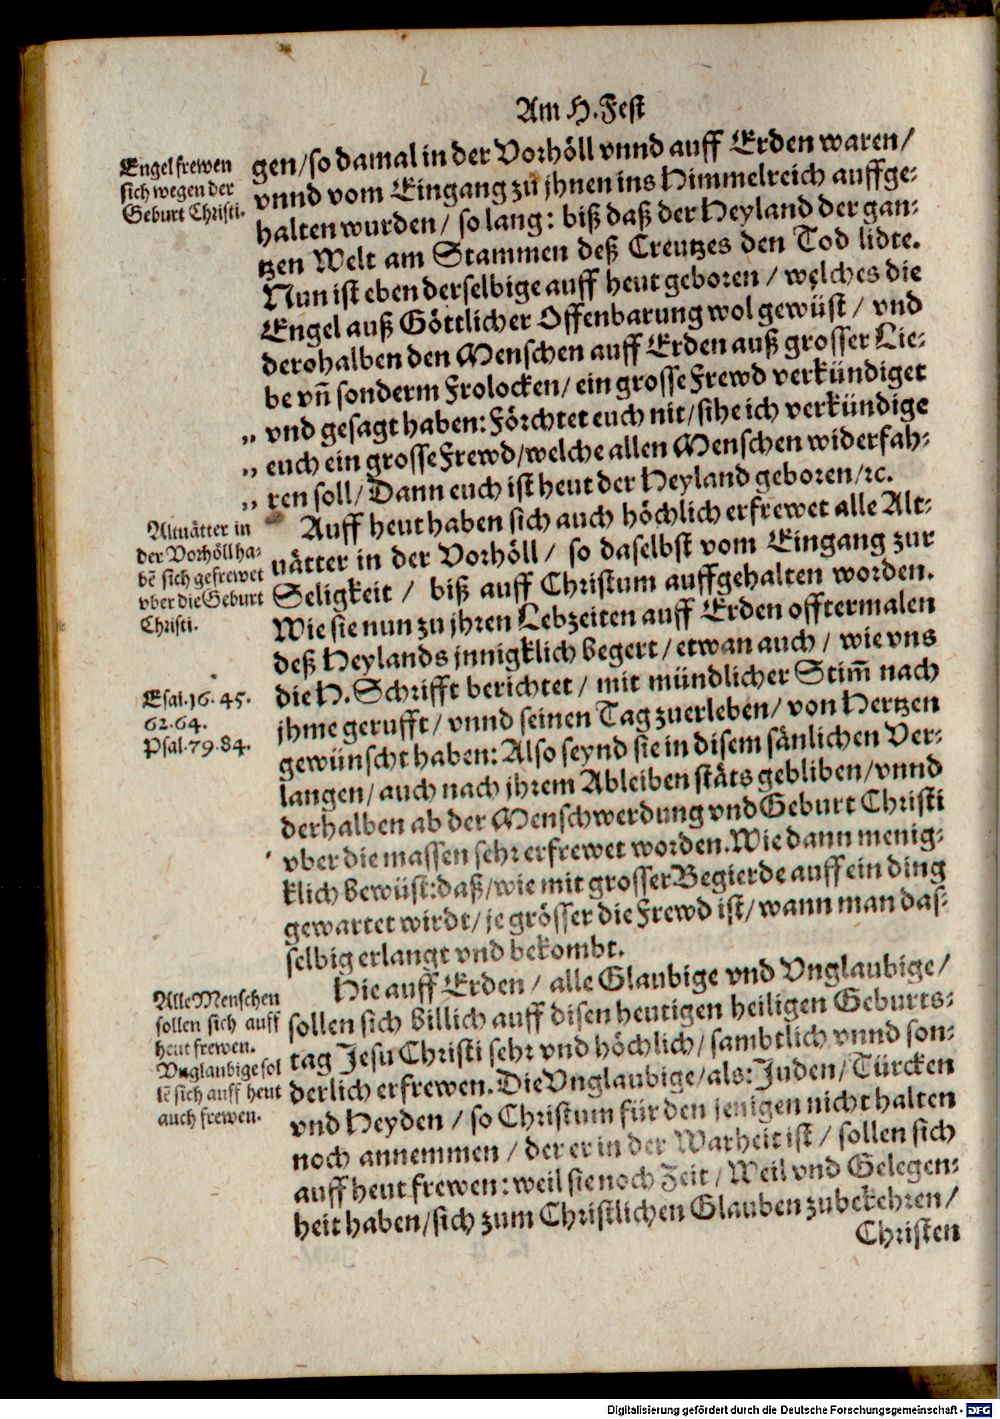 Am H. Fest
Engel frewen
sich wegen der
Geburt Christi.
gen/ so damal in der Vorhöll vnnd auff Erden waren/
vnnd vom Eingang zu jhnen ins Himmelreich auffge-
halten wurden/ so lang: biß daß der Heyland der gan-
tzen Welt am Stammen deß Creutzes den Tod lidte.
Nun ist eben derselbige auff heut geboren/ welches die
Engel auß Göttlicher Offenbarung wol gewüst/ vnd
derohalben den Menschen auff Erden auß grosser Lie-
be vñ sonderm Frolocken/ ein grosse Frewd verkündiget
„ vnd gesagt haben: Förchtet euch nit/ sihe ich verkündige
„ euch ein grosse Frewd/ welche allen Menschen widerfah-
„ ren soll/ Dann euch ist heut der Heyland geboren/ ꝛc.
Altuätter in
der Vorhöll ha-
bẽ sich gefrewet
vber die Geburt
Christi.
Auff heut haben sich auch höchlich erfrewet alle Alt-
uätter in der Vorhöll/ so daselbst vom Eingang zur
Seligkeit/ biß auff Christum auffgehalten worden.
Wie sie nun zu jhren Lebzeiten auff Erden offtermalen
deß Heylands jnnigklich begert/ etwan auch/ wie vns
Esai. 16. 45.
62. 64.
Psal. 79. 84.
die H. Schrifft berichtet/ mit mündlicher Stim̃ nach
jhme gerufft/ vnnd seinen Tag zuerleben/ von Hertzen
gewünscht haben: Also seynd sie in disem sänlichen Ver-
langen/ auch nach jhrem Ableiben stäts gebliben/ vnnd
derhalben ab der Menschwerdung vnd Geburt Christi
vber die massen sehr erfrewet worden. Wie dann menig-
klich bewüst: daß/ wie mit grosser Begierde auff ein ding
gewartet wirdt/ je grösser die Frewd ist/ wann man das-
selbig erlangt vnd bekombt.
Alle Menschen
sollen sich auff
heut frewen.
Vnglaubige sol
lẽ sich auff heut
auch frewen.
Hie auff Erden/ alle Glaubige vnd Vnglaubige/
sollen sich billich auff disen heutigen heiligen Geburts-
tag Jesu Christi sehr vnd höchlich/ sambtlich vnnd son-
derlich erfrewen. Die Vnglaubige/ als: Juden/ Türcken
vnd Heyden/ so Christum für den jenigen nicht halten
noch annemmen/ der er in der Warheit ist/ sollen sich
auff heut frewen: weil sie noch Zeit/ Weil vnd Gelegen-
heit haben/ sich zum Christlichen Glauben zubekehren/
Christen
Digitalisierung gefördert durch die Deutsche Forschungsgemeinschaft - DFG